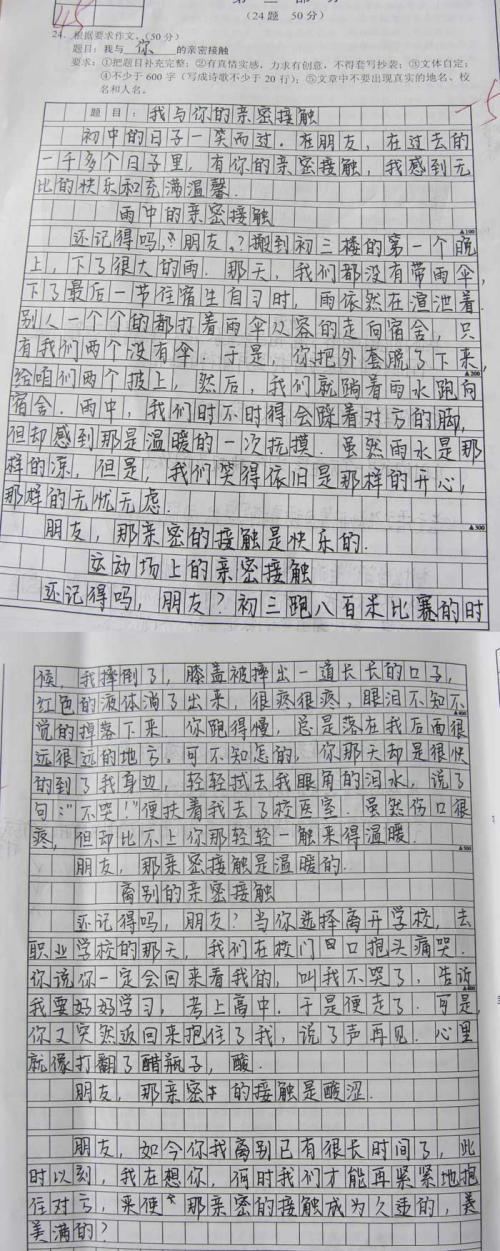 45
第二部分
(24题 50分)
24. 根据要求作文。(50分)
题目:我与 你 的亲密接触
要求:①把题目补充完整;②有真情实感,力求有创意,不得套写抄袭;③文体自定;
④不少于 600 字(写成诗歌不少于 20 行);⑤文章中不要出现真实的地名、校
名和人名。
-5
题目:我与你的亲密接触
初中的日子一笑而过.在朋友,在过去的
一千多个日子里,有你的亲密接触,我感到无
比的快乐和充满温馨.
雨中的亲密接触
▲100
还记得吗,“朋友,?搬到初三楼的第一个晚
上,下了很大的雨.那天,我们都没有带雨伞,
下了最后一节住宿生自习时,雨依然在渲泄着.
别人一个个的都打着雨伞从容的走向宿舍,只
有我们两个没有伞.于是,你把外套脱了下来,
▲200
给咱们两个披上,然后,我们就踏着雨水跑向
宿舍.雨中,我们时不时得会踩着对方的脚,
但却感到那是温暖的一次抚摸.虽然雨水是那
样的凉,但是,我们笑得依旧是那样的开心,
那样的无忧无虑.
▲300
朋友,那亲密的接触是快乐的.
运动场上的亲密接触
还记得吗,朋友?初三跑八百米比赛的时
候,我摔倒了,膝盖被摔出一道长长的口子,
红色的液体淌了出来,很疼很疼,眼泪不知不
▲400
觉的掉落下来.你跑得慢,总是落在我后面很
远很远的地方.可不知怎的,你那天却是很快
的到了我身边,轻轻拭去我眼角的泪水,说了
句:“不哭!”便扶着我去了校医室.虽然伤口很
疼,但却比不上你那轻轻一触来得温暖.
▲500
朋友,那亲密接触是温暖的.
离别的亲密接触
还记得吗,朋友?当你选择离开学校,去
职业学校的那天,我们在校门口抱头痛哭.
你说你一定会回来看我的,叫我不哭了,告诉
▲600
我要好好学习,考上高中.于是便走了.可是,
你又突然返回来抱住了我,说了声再见.心里
就像打翻了醋瓶子,酸.
朋友,那亲密的接触是酸涩.
朋友,如今你我离别已有很长时间了,此
时以刻,我在想你,何时我们才能再紧紧地抱
住对方,来使那亲密的接触成为久违的,美
美满的?